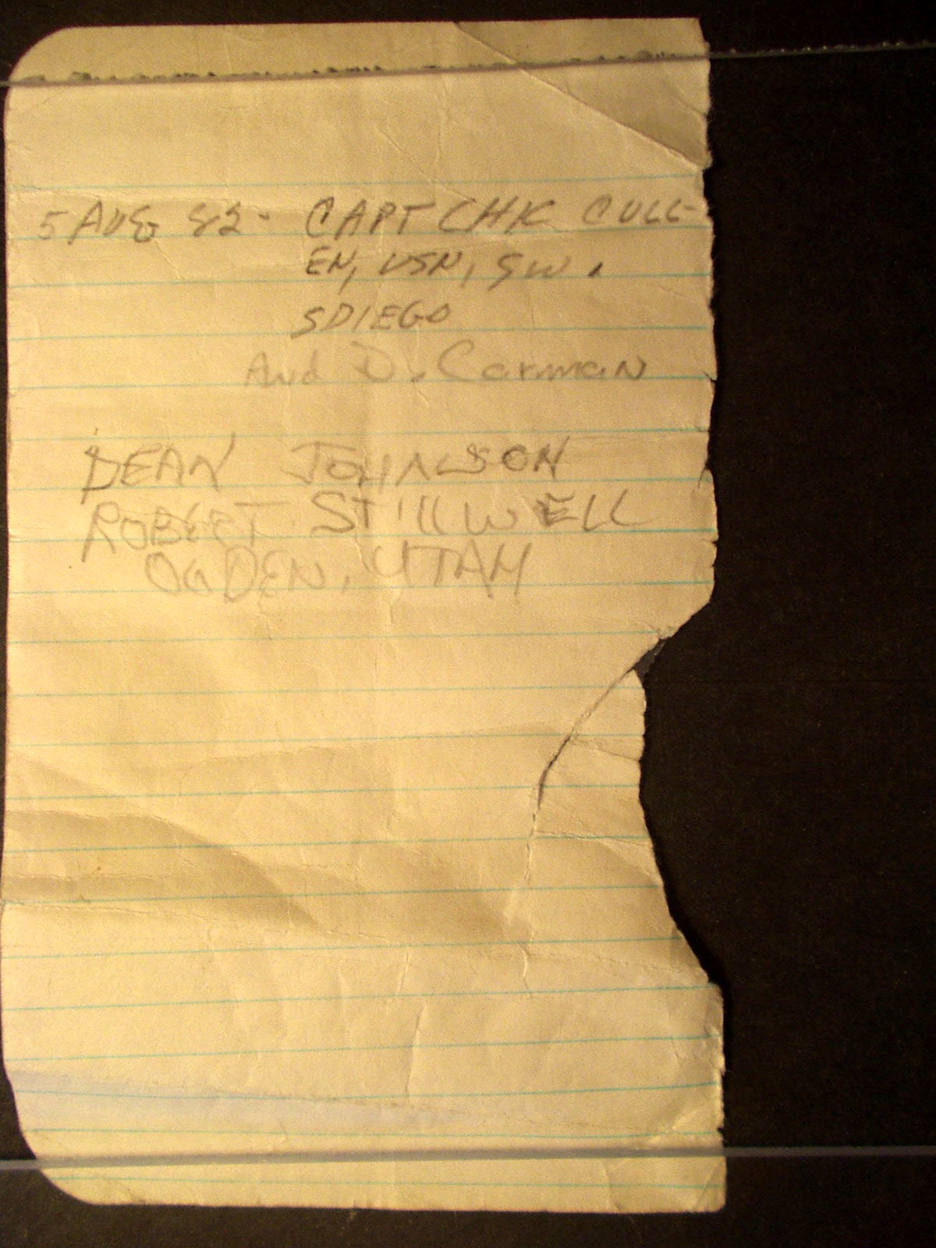 5 AUG 82- CAPT CHK CULL-
EN, USN, SW.
SDIEGO
And D. Carman
DEAN JOHNSON
ROBERT STILLWELL
OGDEN, UTAH